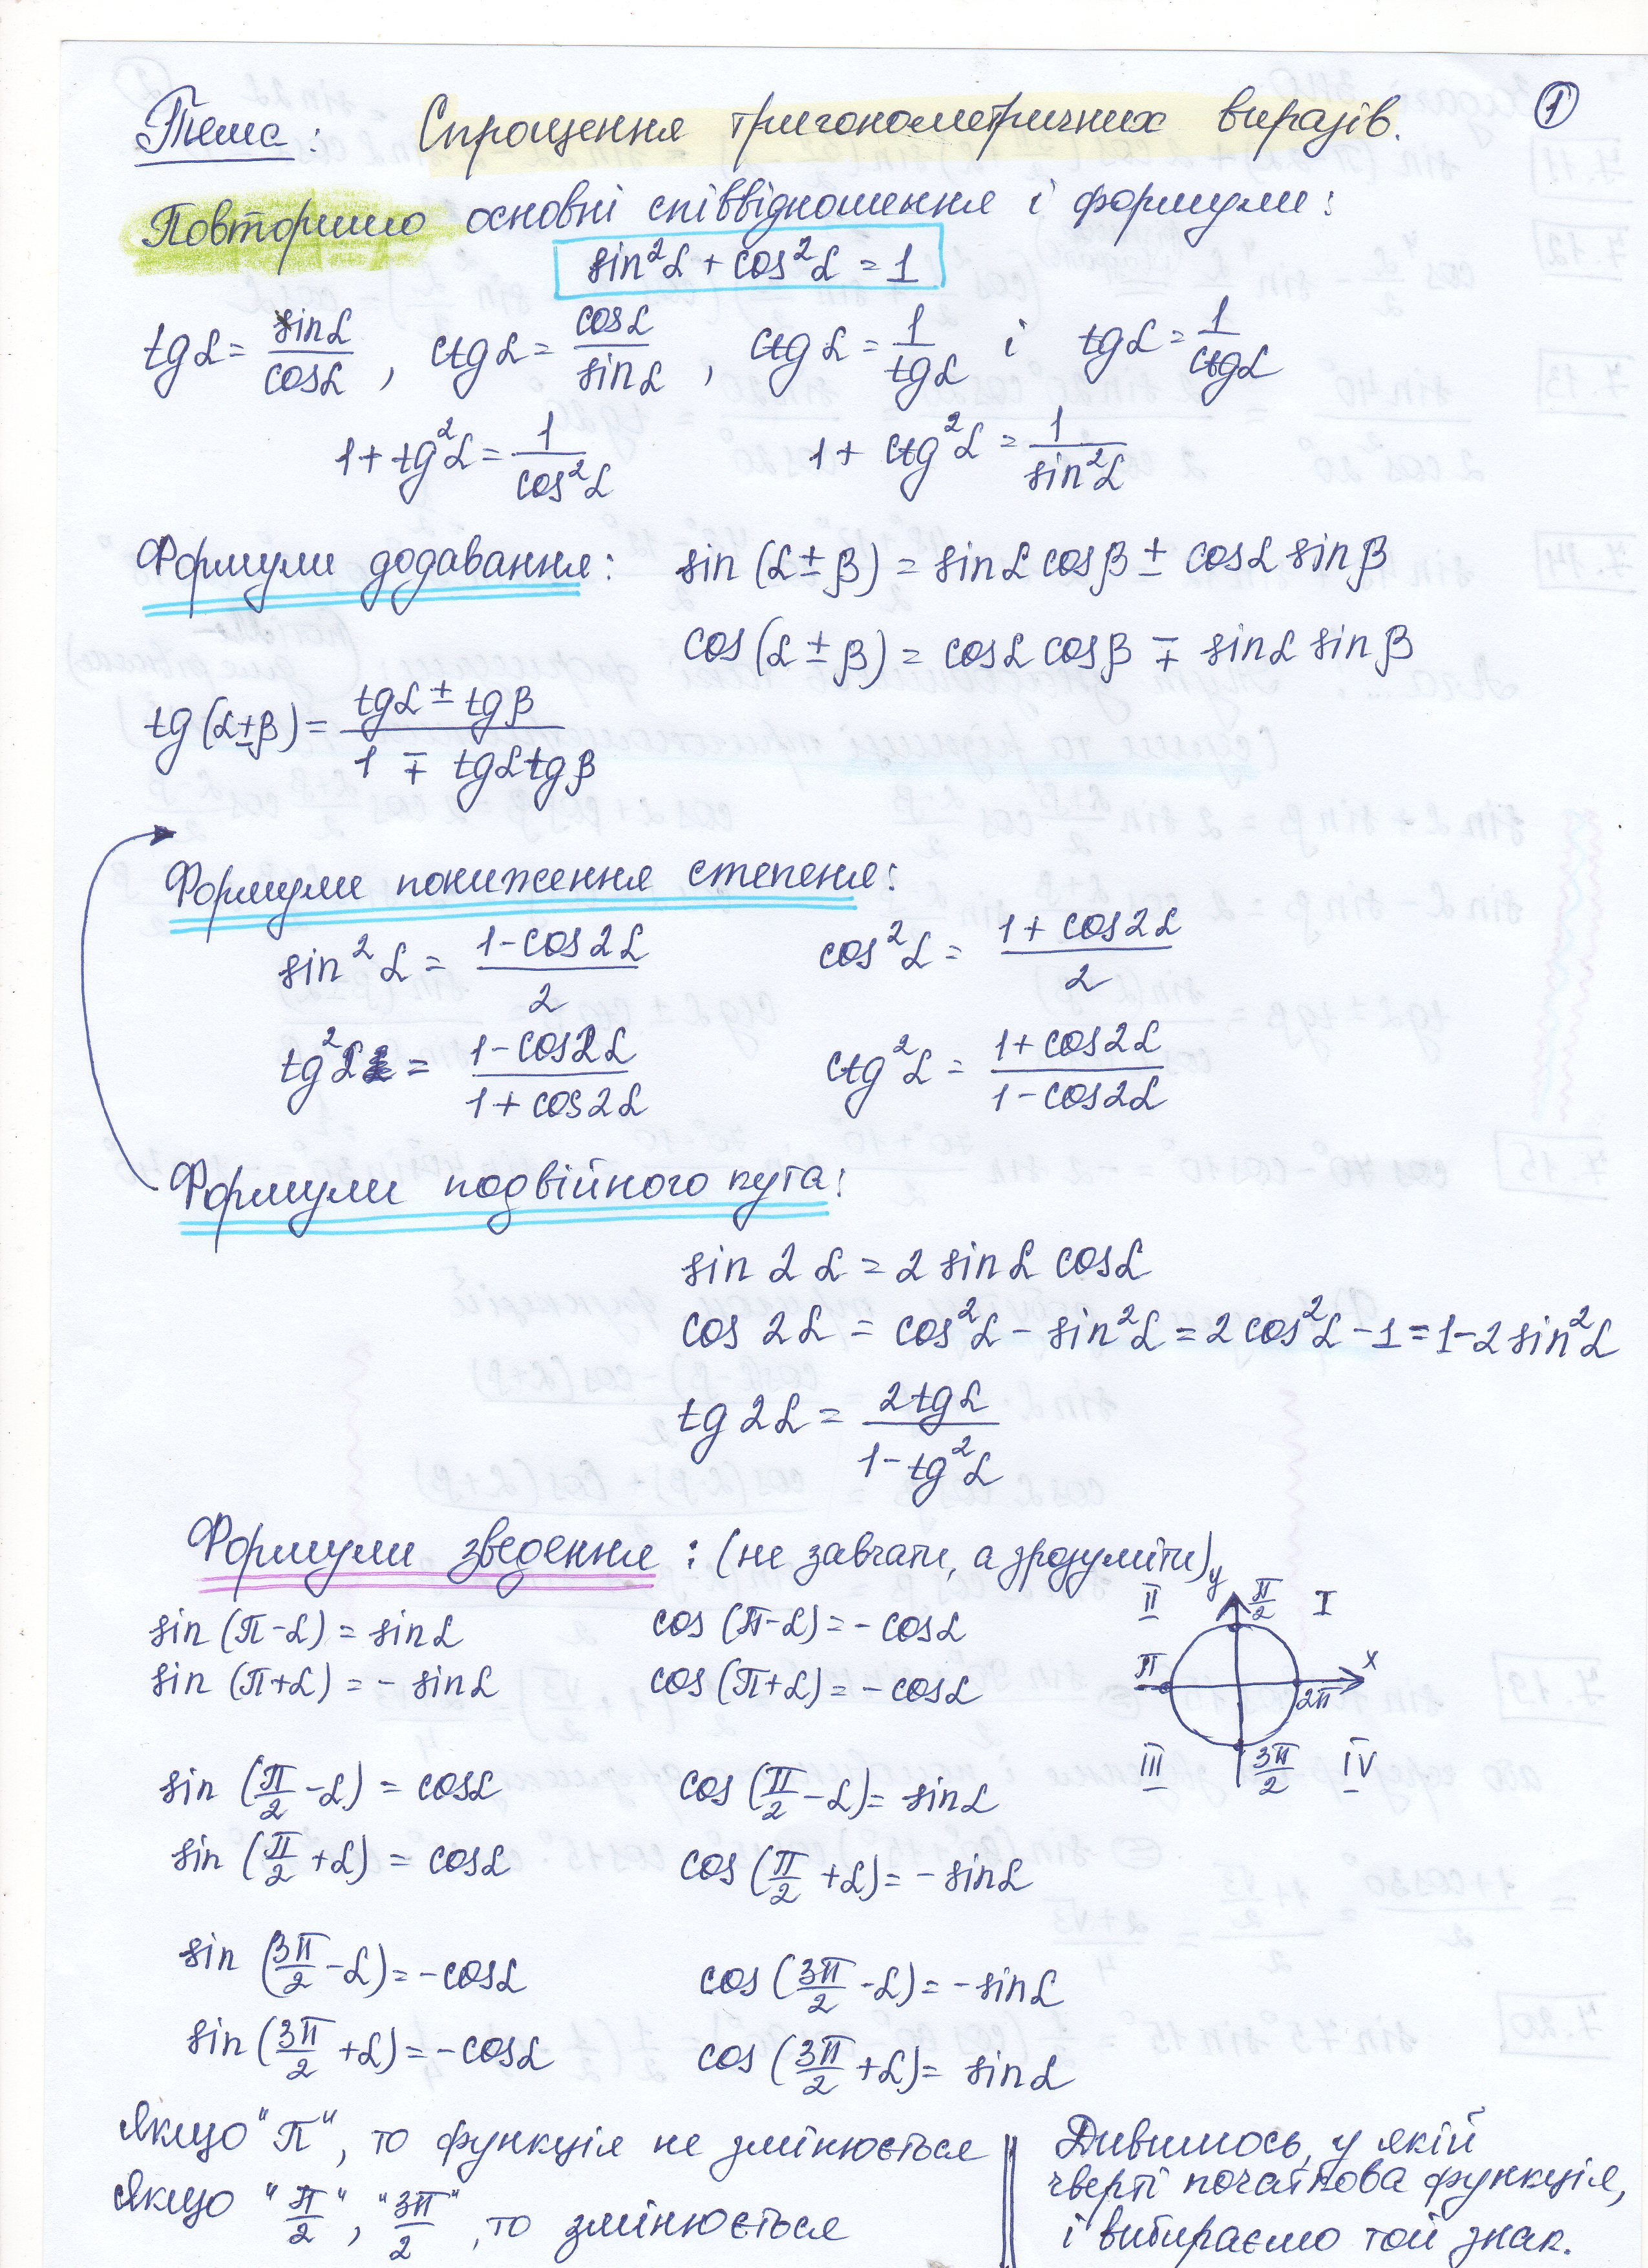 Тема: Спрощення тригонометричних виразів. 1
Повторимо основні співвідношення і формули:
sin²α + cos²α = 1
tgα = sinα/cosα, ctgα = cosα/sinα, ctgα = 1/tgα і tgα = 1/ctgα
1 + tg²α = 1/cos²α 1 + ctg²α = 1/sin²α
Формули додавання: sin(α ± β) = sinα cosβ ± cosα sinβ
cos(α ± β) = cosα cosβ ∓ sinα sinβ
tg(α ± β) = (tgα ± tgβ)/(1 ∓ tgα tgβ)
Формули пониження степеня:
sin²α = (1 - cos2α)/2 cos²α = (1 + cos2α)/2
tg²α = (1 - cos2α)/(1 + cos2α) ctg²α = (1 + cos2α)/(1 - cos2α)
Формули подвійного кута:
sin 2α = 2 sinα cosα
cos 2α = cos²α - sin²α = 2cos²α - 1 = 1 - 2sin²α
tg 2α = 2tgα/(1 - tg²α)
Формули зведення: (не завчати, а зрозуміти)
y π/2 I II
sin(π - α) = sinα cos(π - α) = -cosα
sin(π + α) = -sinα cos(π + α) = -cosα
π x 2π
III 3π/2 IV
sin(π/2 - α) = cosα cos(π/2 - α) = sinα
sin(π/2 + α) = cosα cos(π/2 + α) = -sinα
sin(3π/2 - α) = -cosα cos(3π/2 - α) = -sinα
sin(3π/2 + α) = -cosα cos(3π/2 + α) = sinα
Якщо "π", то функція не змінюється
Якщо "π/2", "3π/2", то змінюється
Дивимось, у якій
чверті початкова функція,
і вибираємо той знак.